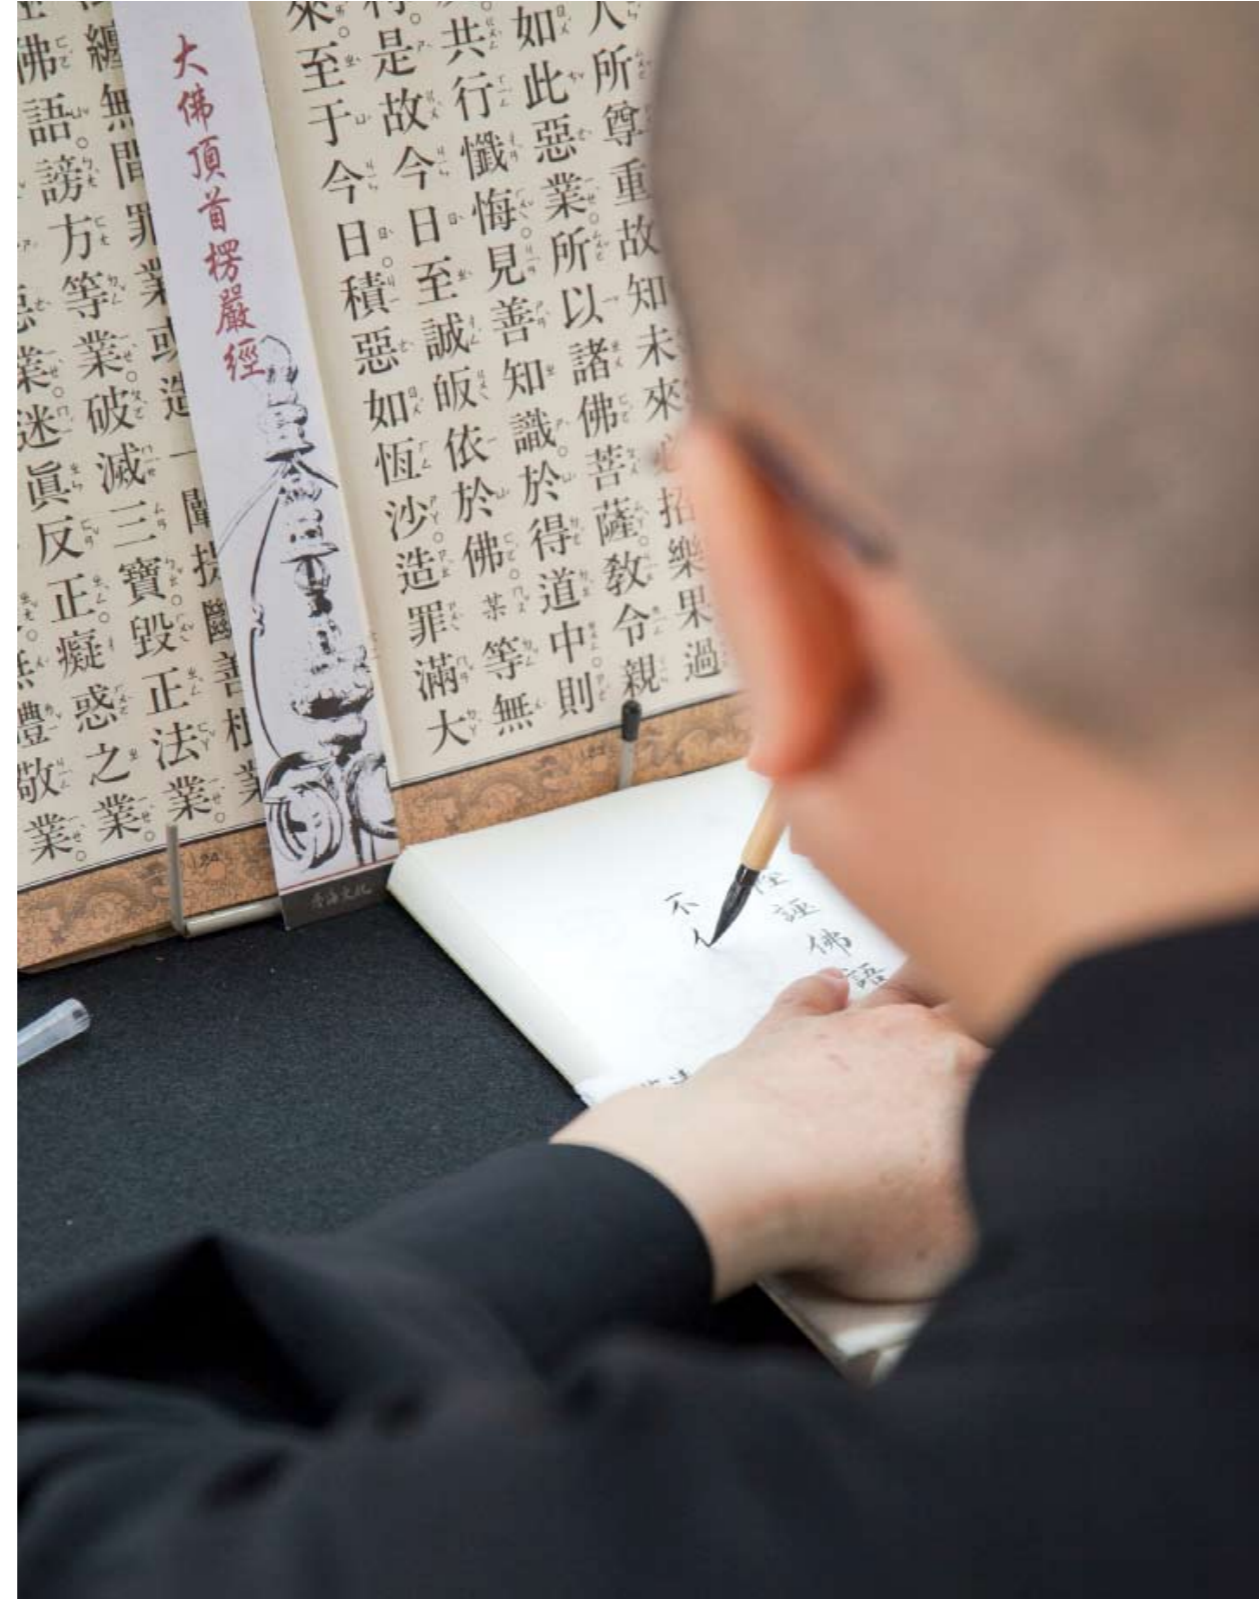 人所尊重故知未來必招樂果過
如此惡業。所以諸佛菩薩。敎令親
共行懺悔。見善知識。於得道中。則
是故今日至誠皈依於佛。某等無
來。至于今日。積惡如恆沙。造罪滿大
大佛頂首楞嚴經
香海文化
纏無間罪業或造一闡提斷善根業
佛語。謗方等業。破滅三寶。毀正法業。
業。迷眞反正。癡惑之業。
禮敬業。
124
誣佛語
不